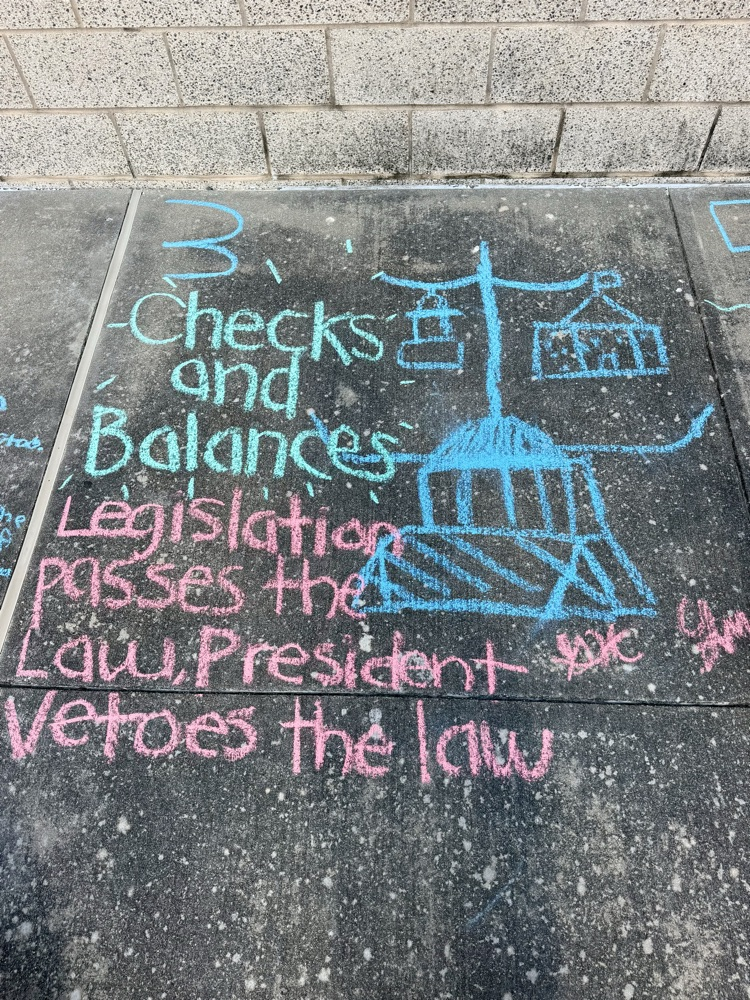 3
Checks
and
Balances
Legislation
passes the
Law, President
Vetoes the law